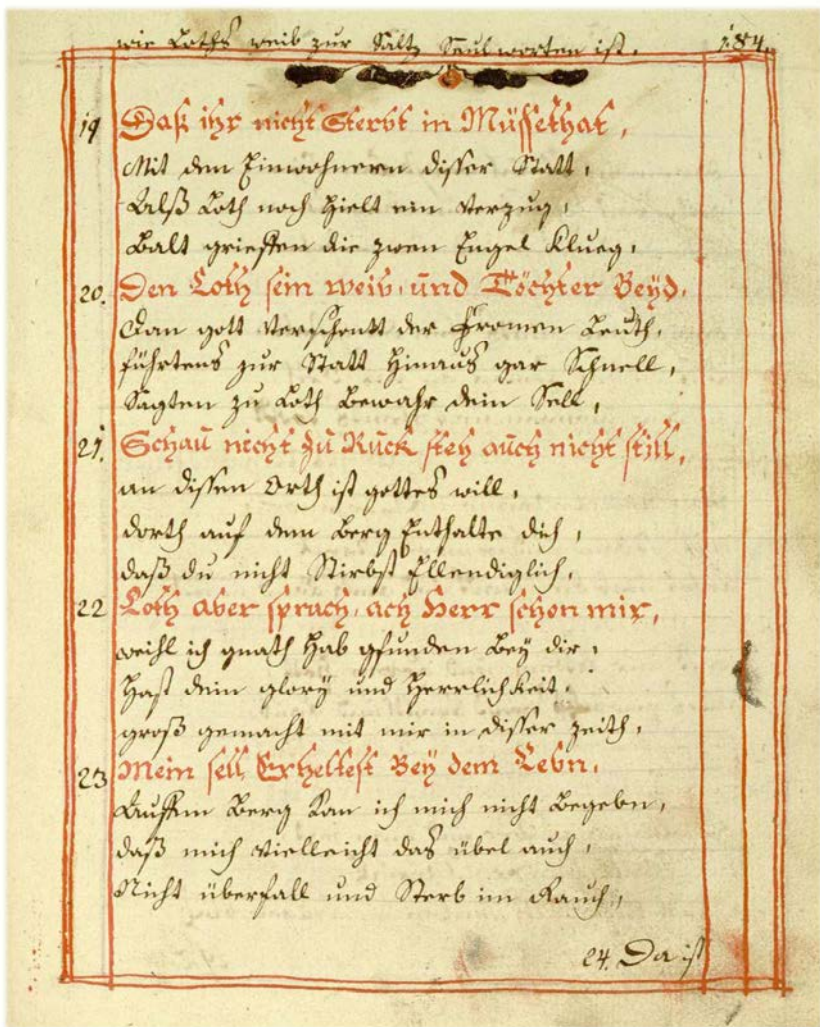 wie Loths weib zur Saltz Saul worten ist. 184.
19 Daß ihr nicht Sterbt in Müssethat,
Mit den Einwohnern disser Statt,
Alß Loth noch hielt ein Verzug,
Balt grieffen die zwen Engel Klueg,
20. Den Loth sein weib, und Töchter Beyd,
Dan gott Verschontt der Fromen Leuth,
führtens zur Statt hinauß gar Schnell,
Sagten zu Loth Bewahr dein Sell,
21. Schau nicht zu Ruck steh auch nicht still,
an dissen Orth ist gottes will,
dorth auf dem Berg Enthalte dich,
daß du nicht Stirbst Ellendiglich,
22 Loth aber sprach, ach Herr schon mir,
weihl ich gnath hab gfunden Bey dir,
hast dein glory und Herrlichkeit,
groß gemacht mit mir in disser zeith,
23 Mein sell Erheltest Bey dem Lebn,
Auffm Berg Kan ich mich nicht Begebn,
daß mich Vielleicht das übel auch,
Nicht überfall und Sterb im Rauch,
24. Da ist